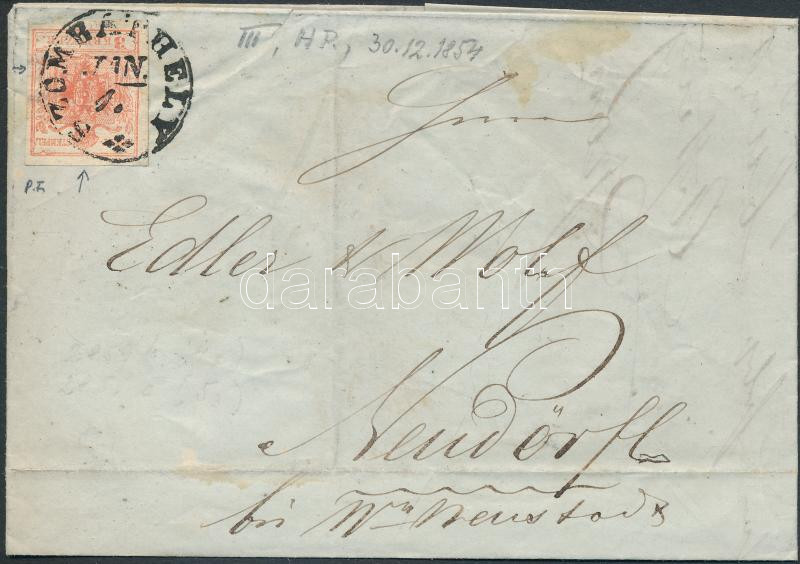 III, H.P., 30.12.1854
SZOMBATHELY
JAN.
STEMPEL
P.F.
Edler & Wolf
darabanth
Neudörfl
bei Wr Neustadt